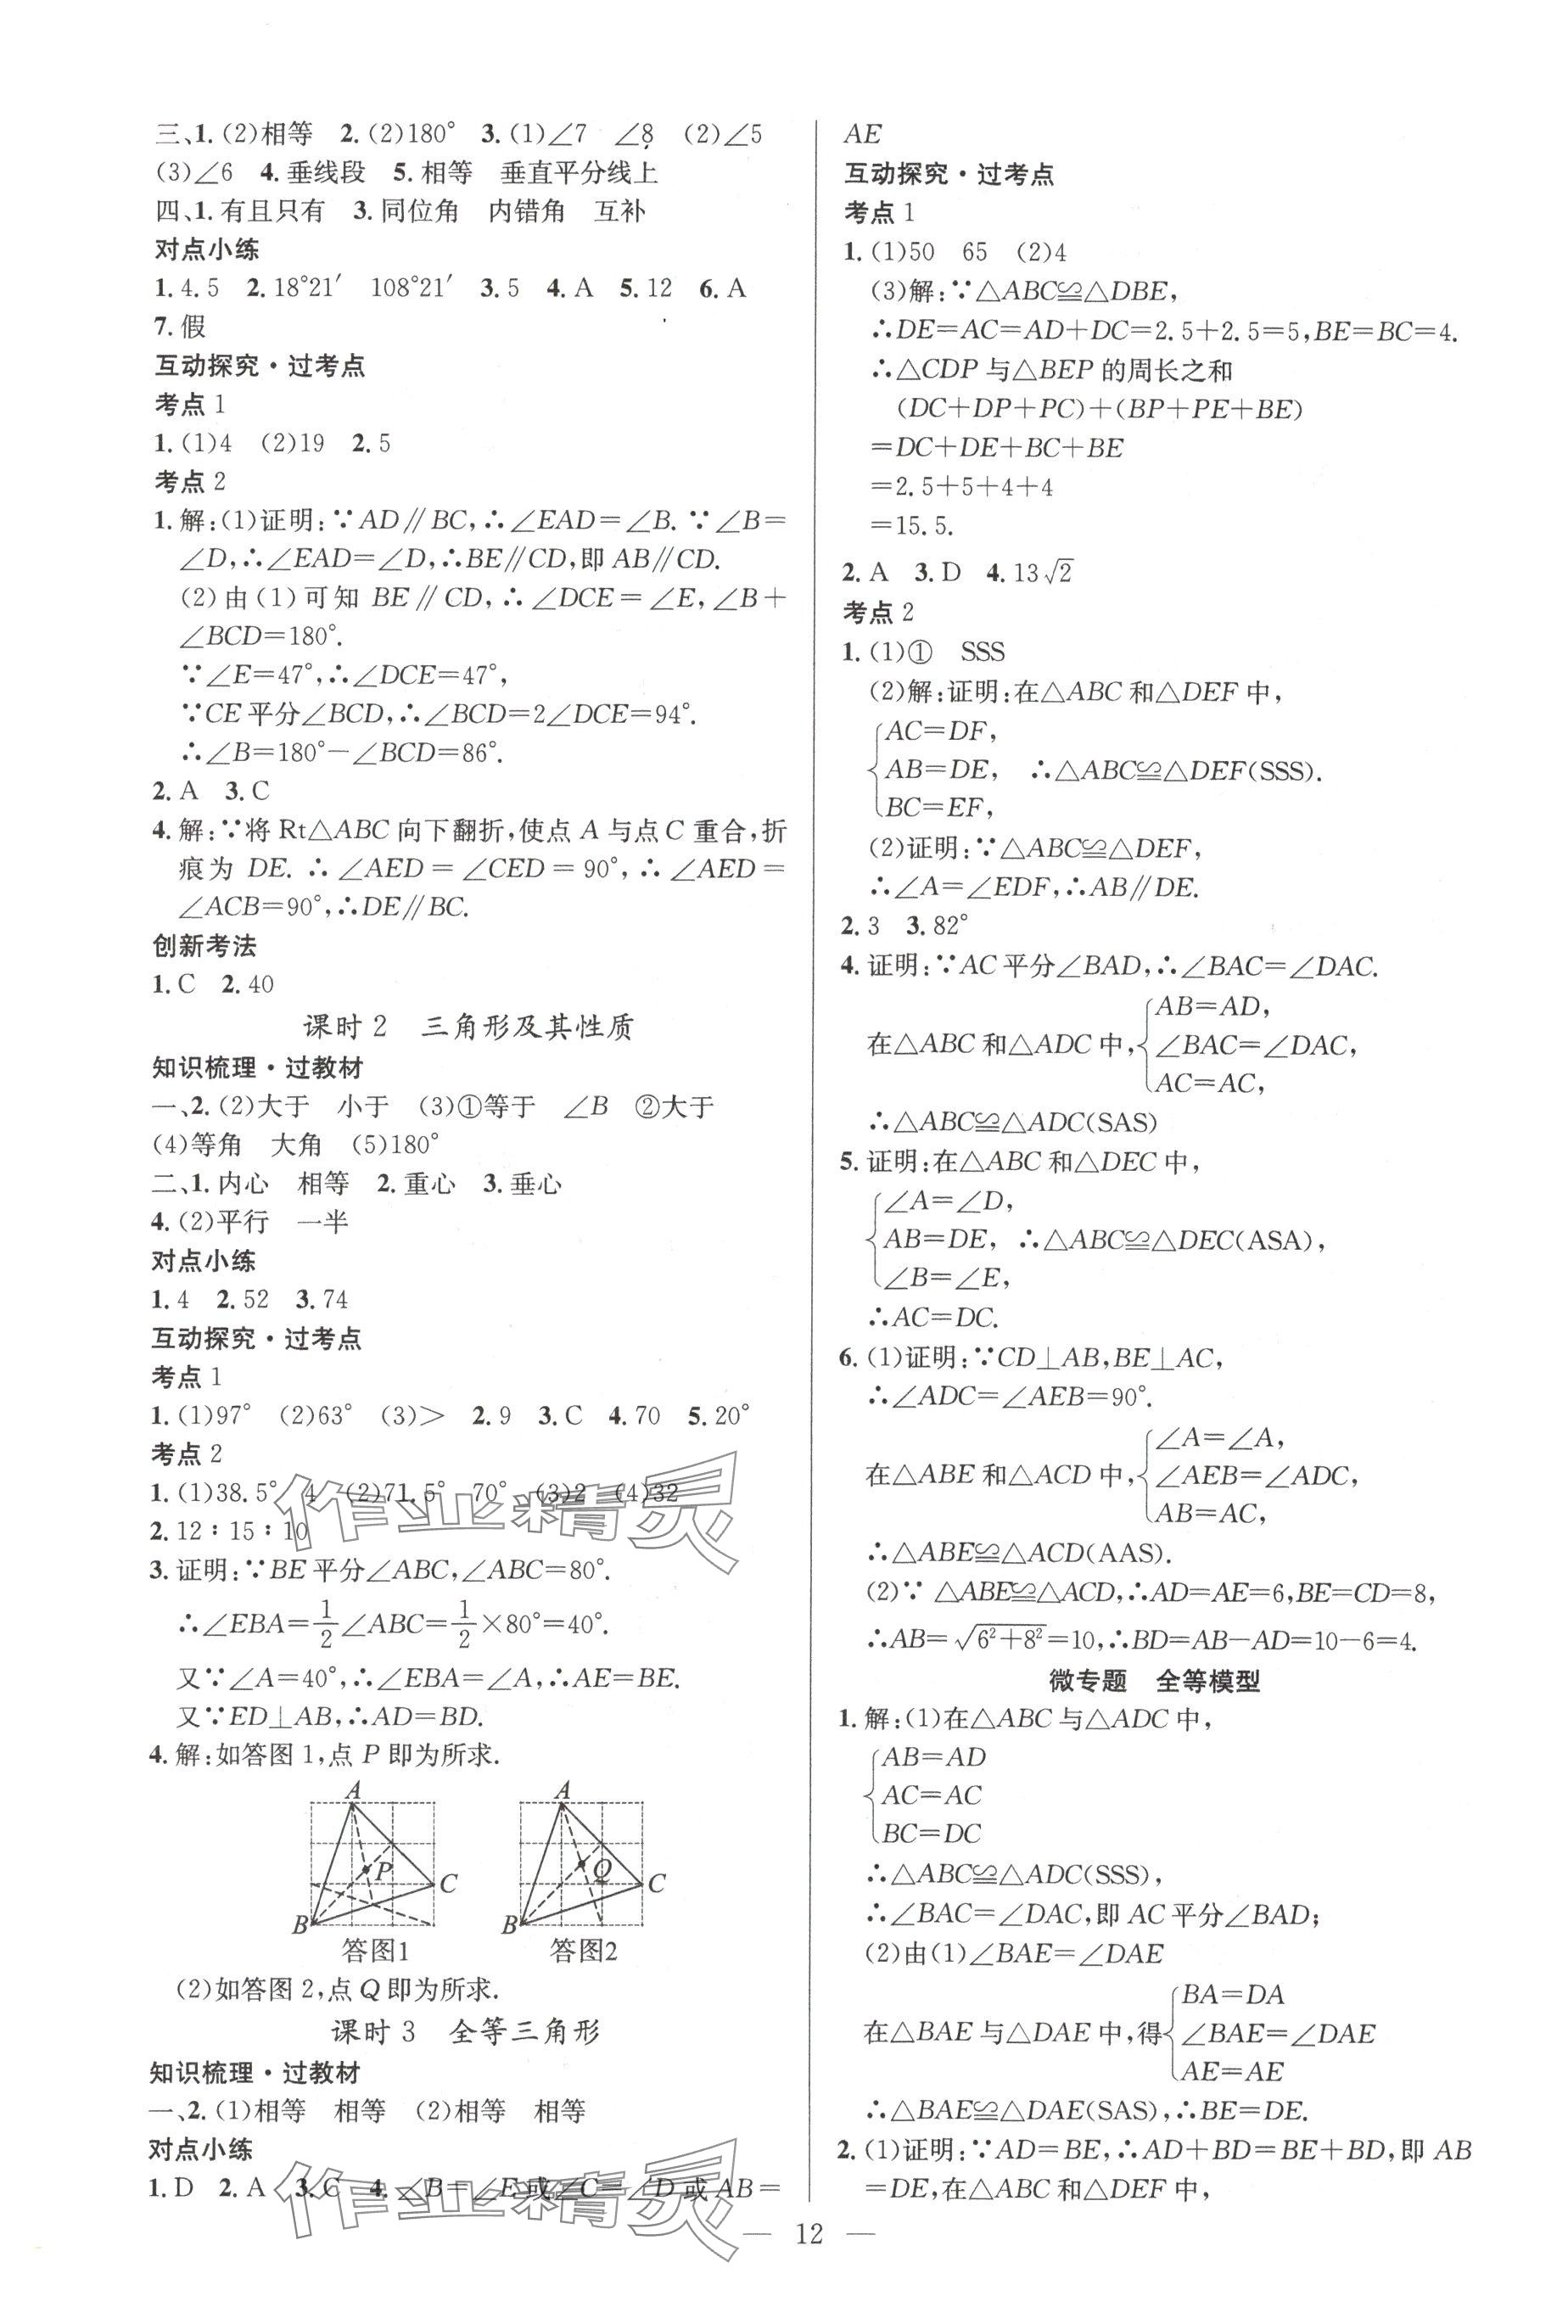 三、1.(2)相等　2.(2)180°　3.(1)∠7　∠8　(2)∠5
(3)∠6　4.垂线段　5.相等　垂直平分线上
四、1.有且只有　3.同位角　内错角　互补
对点小练
1.4.5　2.18°21′　108°21′　3.5　4.A　5.12　6.A
7.假
互动探究·过考点
考点1
1.(1)4　(2)19　2.5
考点2
1.解:(1)证明:∵AD∥BC,∴∠EAD=∠B.∵∠B=
∠D,∴∠EAD=∠D,∴BE∥CD,即AB∥CD.
(2)由(1)可知BE∥CD,∴∠DCE=∠E,∠B+
∠BCD=180°.
∵∠E=47°,∴∠DCE=47°,
∵CE平分∠BCD,∴∠BCD=2∠DCE=94°.
∴∠B=180°-∠BCD=86°.
2.A　3.C
4.解:∵将Rt△ABC向下翻折,使点A与点C重合,折
痕为DE.∴∠AED=∠CED=90°,∴∠AED=
∠ACB=90°,∴DE∥BC.
创新考法
1.C　2.40
课时2　三角形及其性质
知识梳理·过教材
一、2.(2)大于　小于　(3)①等于　∠B　②大于
(4)等角　大角　(5)180°
二、1.内心　相等　2.重心　3.垂心
4.(2)平行　一半
对点小练
1.4　2.52　3.74
互动探究·过考点
考点1
1.(1)97°　(2)63°　(3)>　2.9　3.C　4.70　5.20°
考点2
1.(1)38.5°　4　(2)71.5°　70°　(3)2　(4)32
2.12∶15∶10
作业精灵
3.证明:∵BE平分∠ABC,∠ABC=80°.
∴∠EBA=1/2∠ABC=1/2×80°=40°.
又∵∠A=40°,∴∠EBA=∠A,∴AE=BE.
又∵ED⊥AB,∴AD=BD.
4.解:如答图1,点P即为所求.
A
P
C
B
答图1
A
Q
C
B
答图2
(2)如答图2,点Q即为所求.
课时3　全等三角形
知识梳理·过教材
一、2.(1)相等　相等　(2)相等　相等
对点小练
1.D　2.A　3.C　4.∠B=∠E或∠C=∠D或AB=
作业精灵
AE
互动探究·过考点
考点1
1.(1)50　65　(2)4
(3)解:∵△ABC≌△DBE,
∴DE=AC=AD+DC=2.5+2.5=5,BE=BC=4.
∴△CDP与△BEP的周长之和
(DC+DP+PC)+(BP+PE+BE)
=DC+DE+BC+BE
=2.5+5+4+4
=15.5.
2.A　3.D　4.13√2
考点2
1.(1)①　SSS
(2)解:证明:在△ABC和△DEF中,
AC=DF,
AB=DE,　∴△ABC≌△DEF(SSS).
BC=EF,
(2)证明:∵△ABC≌△DEF,
∴∠A=∠EDF,∴AB∥DE.
2.3　3.82°
4.证明:∵AC平分∠BAD,∴∠BAC=∠DAC.
AB=AD,
在△ABC和△ADC中,{∠BAC=∠DAC,
AC=AC,
∴△ABC≌△ADC(SAS)
5.证明:在△ABC和△DEC中,
∠A=∠D,
AB=DE,　∴△ABC≌△DEC(ASA),
∠B=∠E,
∴AC=DC.
6.(1)证明:∵CD⊥AB,BE⊥AC,
∴∠ADC=∠AEB=90°.
∠A=∠A,
在△ABE和△ACD中,{∠AEB=∠ADC,
AB=AC,
∴△ABE≌△ACD(AAS).
(2)∵△ABE≌△ACD,∴AD=AE=6,BE=CD=8,
∴AB=√(6²+8²)=10,∴BD=AB-AD=10-6=4.
微专题　全等模型
1.解:(1)在△ABC与△ADC中,
AB=AD
AC=AC
BC=DC
∴△ABC≌△ADC(SSS),
∴∠BAC=∠DAC,即AC平分∠BAD;
(2)由(1)∠BAE=∠DAE
BA=DA
在△BAE与△DAE中,得{∠BAE=∠DAE
AE=AE
∴△BAE≌△DAE(SAS),∴BE=DE.
2.(1)证明:∵AD=BE,∴AD+BD=BE+BD,即AB
=DE,在△ABC和△DEF中,
— 12 —